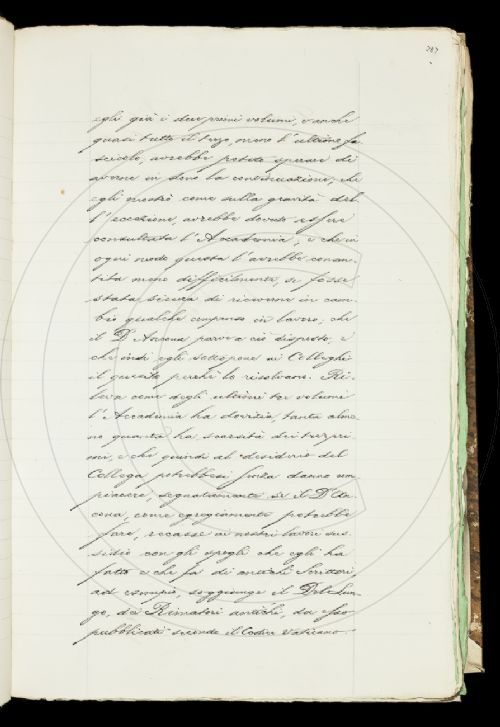 787
egli già i due primi volumi, e anche
quasi tutto il terzo, meno l'ultimo fa
scicolo, avrebbe potuto sperare di
averne in dono la continuazione, che
egli mostrò come sulla gravità del
l'eccezione, avrebbe dovuto essere
consultata l'Accademia; e che in
ogni modo questa l'avrebbe consen
tita meno difficilmente, se fosse
stata sicura di riceverne in cam
bio qualche compenso in lavoro, che
il D. Ancona parve a ciò disposto, e
che indi egli sottopone ai Colleghi
il quesito perchè lo risolvano. Ri
leva come degli ultimi tre volumi
l'Accademia ha dovizia, tanta alme
no quanta ha scarsità dei tre pri
mi, e che quindi al desiderio del
Collega potrebbesi senza danno com
piacere, segnatamente se il D'An
cona, come egregiamente potrebbe
fare, recasse ai nostri lavori sus
sidio con gli spogli che egli ha
fatto e che fa di antichi Scrittori
ad esempio, soggiunge il Del Lun
go, dei Rimatori antichi, da esso
pubblicati secondo il Codice Vaticano.